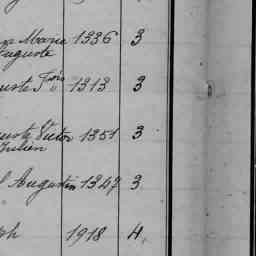 Marie 1336 3
Auguste
1313 3
Victor 1351 3
Julien
Augustin 1347 3
ph 1918 4